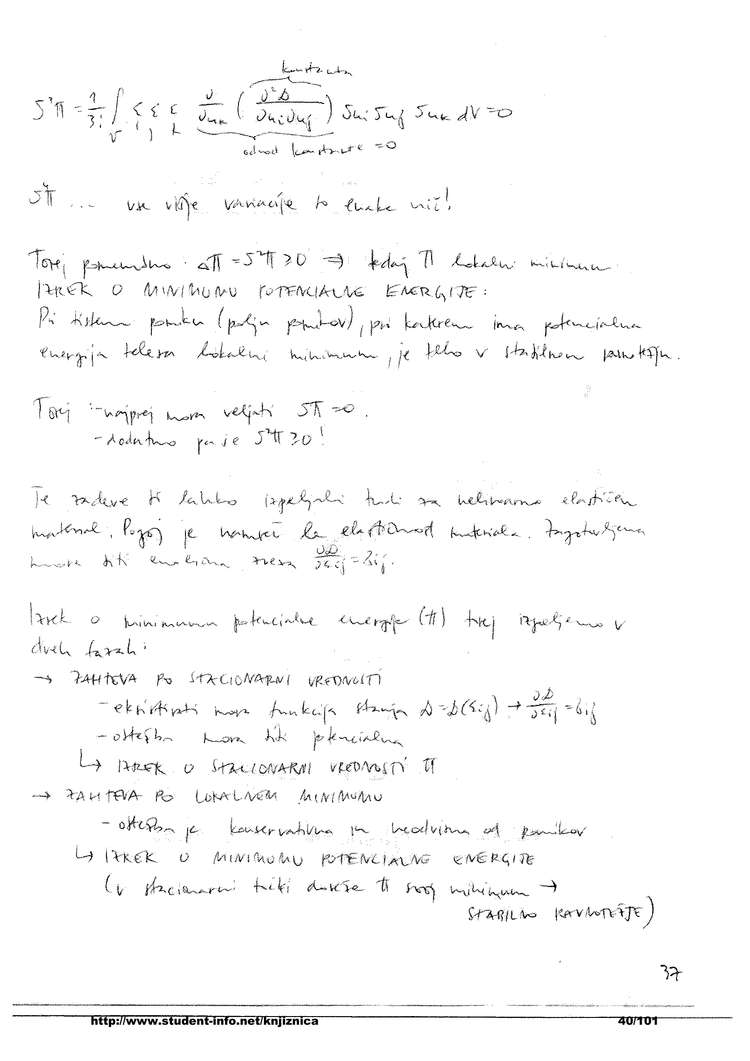 konstanta
δ³π = 1/3! ∫_V Σ_i Σ_j Σ_k ∂/∂u_k ( ∂²D/∂u_i∂u_j ) δu_i δu_j δu_k dV = 0
odvod konstante = 0
δ⁴π ... vse višje variacije so enake nič!
Torej Δπ = δ²π ≥ 0 ⇒ tedaj π lokalni minimum
IZREK O MINIMUMU POTENCIALNE ENERGIJE:
Pri tistem pomiku (polju pomikov), pri katerem ima potencialna
energija telesa lokalni minimum, je telo v stabilnem ravnotežju.
Torej :-najprej mora veljati δπ = 0.
- dodatno pa je δ²π ≥ 0!
Te zadeve bi lahko izpeljali tudi za nelinearno elastičen
material. Pogoj je namreč le elastičnost materiala. Zagotovljena
mora biti enolična zveza ∂D/∂ε_ij = σ_ij.
Izrek o minimumu potencialne energije (π) torej izpeljemo v
dveh fazah:
→ ZAHTEVA PO STACIONARNI VREDNOSTI
- eksistirati mora funkcija stanja D = D(ε_ij) → ∂D/∂ε_ij = σ_ij
- obtežba mora biti potencialna
↳ IZREK O STACIONARNI VREDNOSTI π
→ ZAHTEVA PO LOKALNEM MINIMUMU
- obtežba je konservativna in neodvisna od pomikov
↳ IZREK O MINIMUMU POTENCIALNE ENERGIJE
(v stacionarni točki doseže π svoj minimum →
STABILNO RAVNOTEŽJE)
37
http://www.student-info.net/knjiznica 40/101